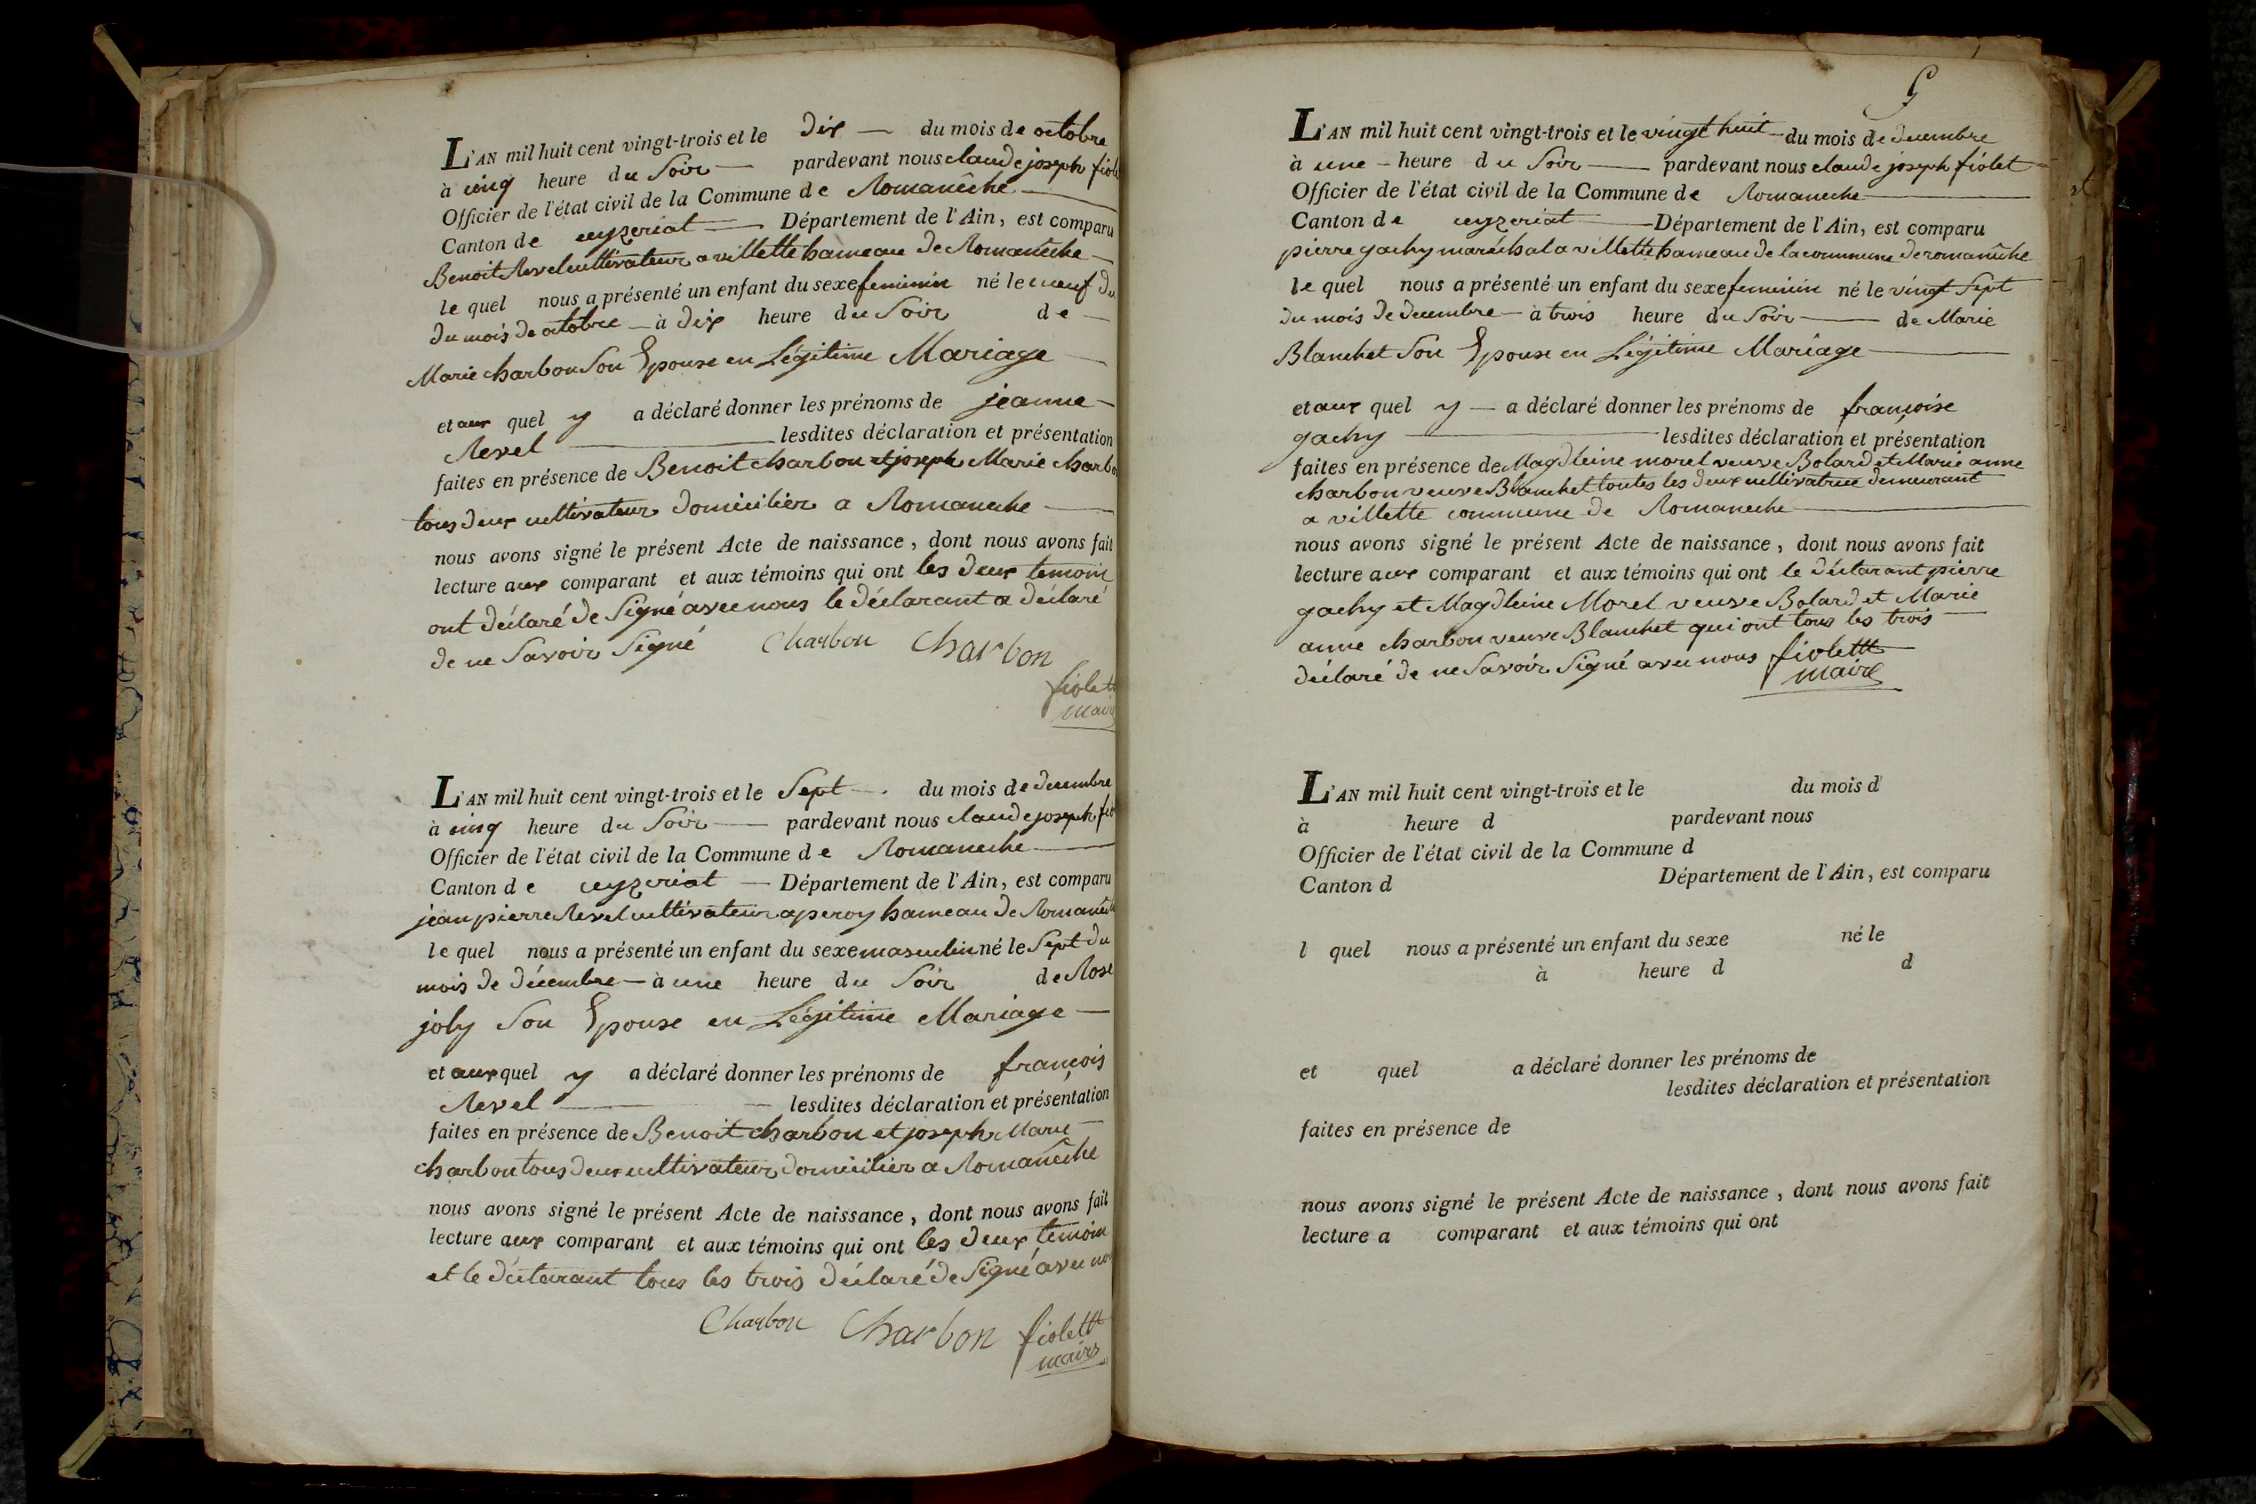 L'AN mil huit cent vingt-trois et le dix — du mois de octobre
à cinq heure du Soir — pardevant nous claude joseph fiole
Officier de l'état civil de la Commune de Romanêche —
Canton de ceyzeriat — Département de l'Ain, est comparu
Benoit Revel cultivateur a villette hameau de Romanêche —
le quel nous a présenté un enfant du sexe feminin né le neuf du
du mois de octobre — à dix heure du Soir de —
Marie charbon Son Epouse en Légitime Mariage —
et aux quel y a déclaré donner les prénoms de jeanne —
Revel — lesdites déclaration et présentation
faites en présence de Benoit charbon et joseph Marie charbo
tous deux cultivateur domicilier a Romaneche —
nous avons signé le présent Acte de naissance, dont nous avons fait
lecture aux comparant et aux témoins qui ont les deux temoin
ont déclaré de Signé avec nous le déclarant a déclaré
de ne Savoir Signé Charbon Charbon
fiolet
mair
L'AN mil huit cent vingt-trois et le Sept — . du mois de decembre
à cinq heure du Soir — pardevant nous claude joseph fio
Officier de l'état civil de la Commune de Romaneche —
Canton de ceyzeriat — Département de l'Ain, est comparu
jean pierre Revel cultivateur a peroy hameau de Romanêch
le quel nous a présenté un enfant du sexe masculin né le Sept du
mois de décembre — à une heure du Soir de Rose
joly Son Epouse en Légitime Mariage —
et aux quel y a déclaré donner les prénoms de françois
Revel — lesdites déclaration et présentation
faites en présence de Benoit charbon et joseph Marie —
charbon tous deux cultivateur domicilier a Romanêche
nous avons signé le présent Acte de naissance, dont nous avons fait
lecture aux comparant et aux témoins qui ont les deux temoin
et le déclarant tous les trois déclaré de Signé avec no
Charbon Charbon fiolett
maire
L'AN mil huit cent vingt-trois et le vingt huit — du mois de decembre
à une — heure du Soir — pardevant nous claude joseph fiolet —
Officier de l'état civil de la Commune de Romaneche —
Canton de ceyzeriat — Département de l'Ain, est comparu
pierre gachy maréchal a villette hameau de la commune de romanêche
le quel nous a présenté un enfant du sexe feminin né le vingt Sept
du mois de decembre — à trois heure du Soir — de Marie
Blanchet Son Epouse en Légitime Mariage —
et aux quel y — a déclaré donner les prénoms de françoise
gachy — lesdites déclaration et présentation
faites en présence de Magdleine morel veuve Bolard et Marie anne
charbon veuve Blanchet toutes les deux cultivatrice demeurant
a villette commune de Romaneche —
nous avons signé le présent Acte de naissance, dont nous avons fait
lecture aux comparant et aux témoins qui ont le déclarant pierre
gachy et Magdleine Morel veuve Bolard et Marie
anne charbon veuve Blanchet qui ont tous les trois —
déclaré de ne Savoir Signé avec nous fiolett
maire
L'AN mil huit cent vingt-trois et le du mois d
à heure d pardevant nous
Officier de l'état civil de la Commune d
Canton d Département de l'Ain, est comparu
l quel nous a présenté un enfant du sexe né le
à heure d d
et quel a déclaré donner les prénoms de
lesdites déclaration et présentation
faites en présence de
nous avons signé le présent Acte de naissance, dont nous avons fait
lecture a comparant et aux témoins qui ont